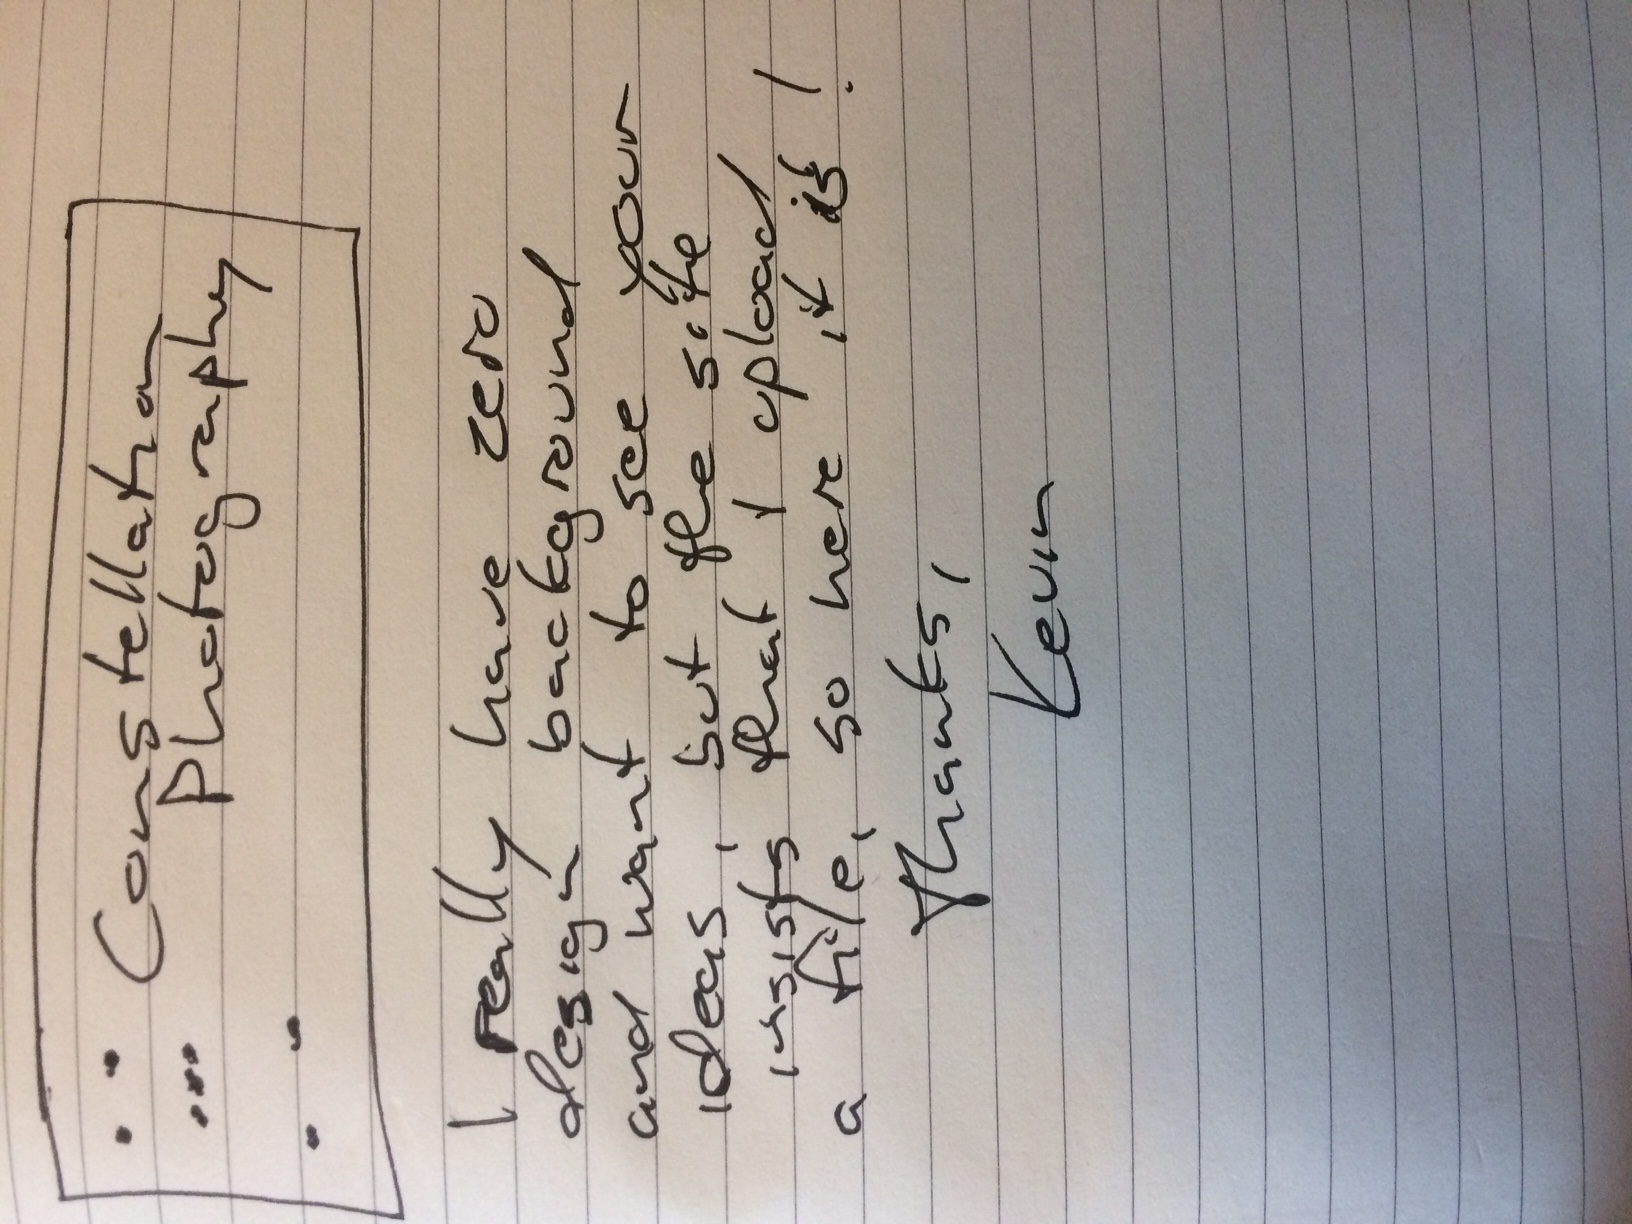 Constellation
Photography
I really have zero
design background
and want to see your
ideas, but the site
insists that I upload
a file, so here it is!
Thanks,
Kevin